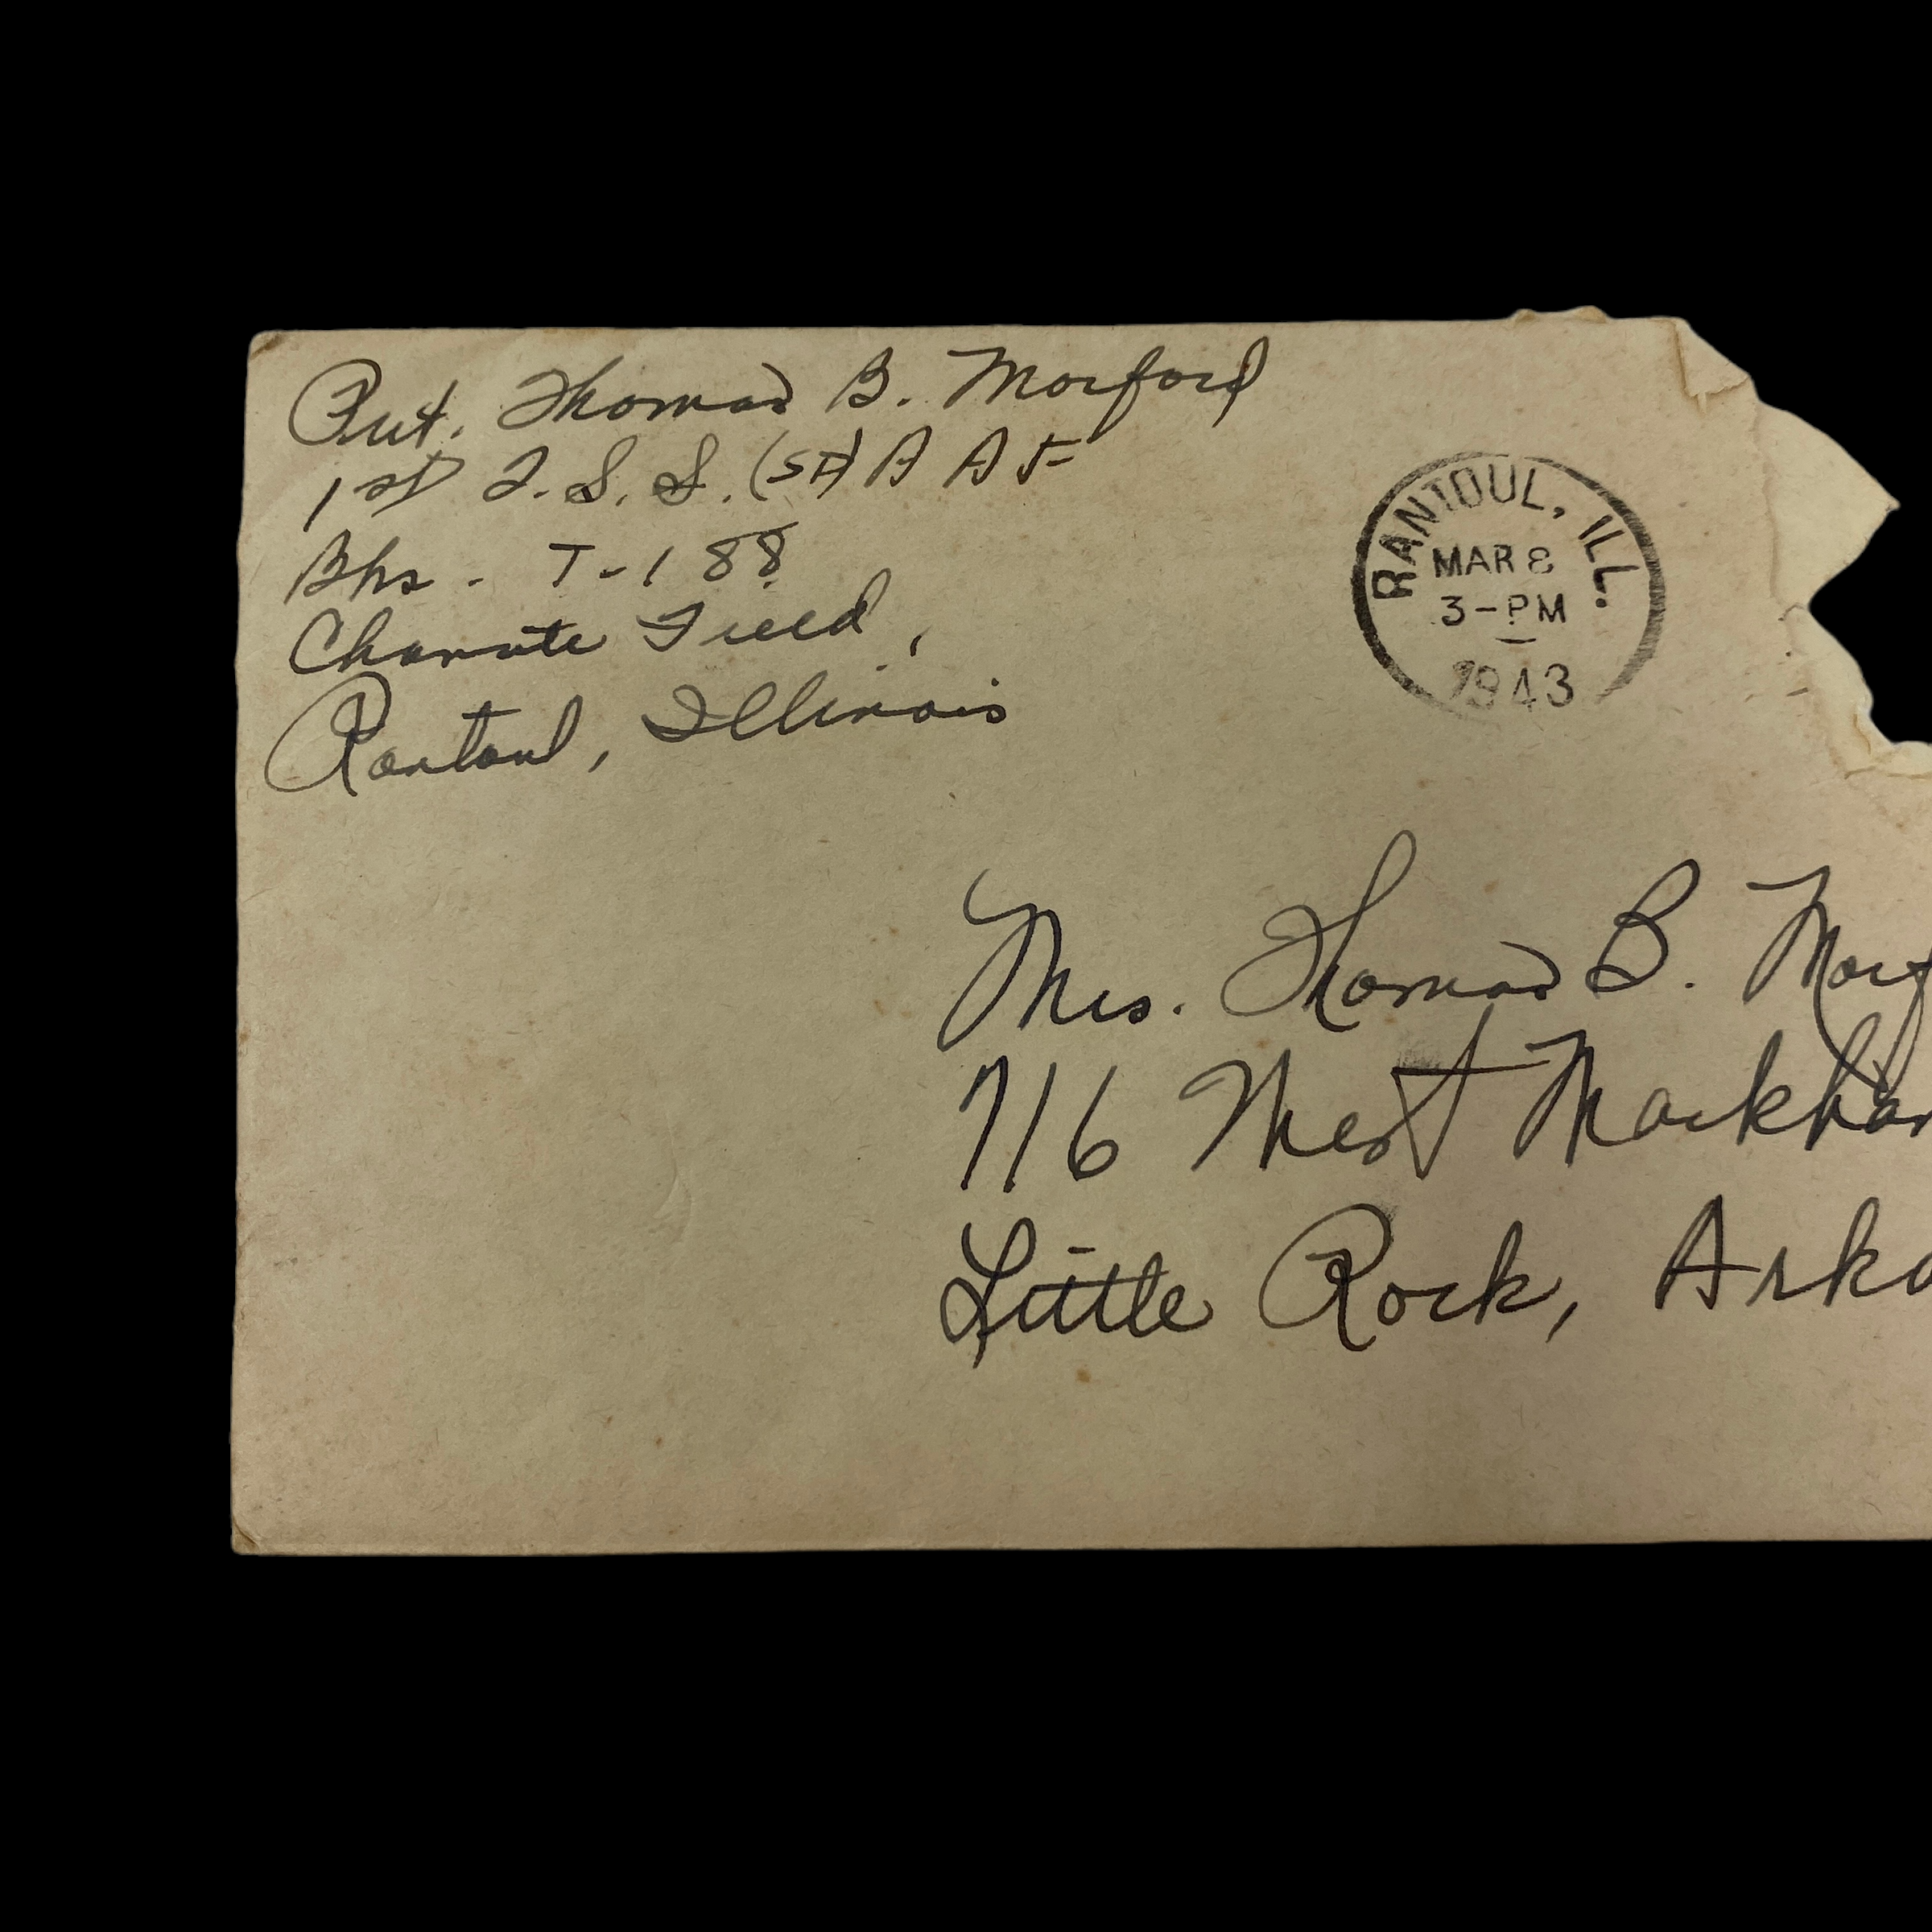 Pvt. Thomas B. Morford
1st T.S.S. (SP) A A F
Bks. T-188
Chanute Field,
Rantoul, Illinois
RANTOUL, ILL.
MAR 8
3-PM
1943
Mrs. Thomas B. Morf
716 West Markham
Little Rock, Arka